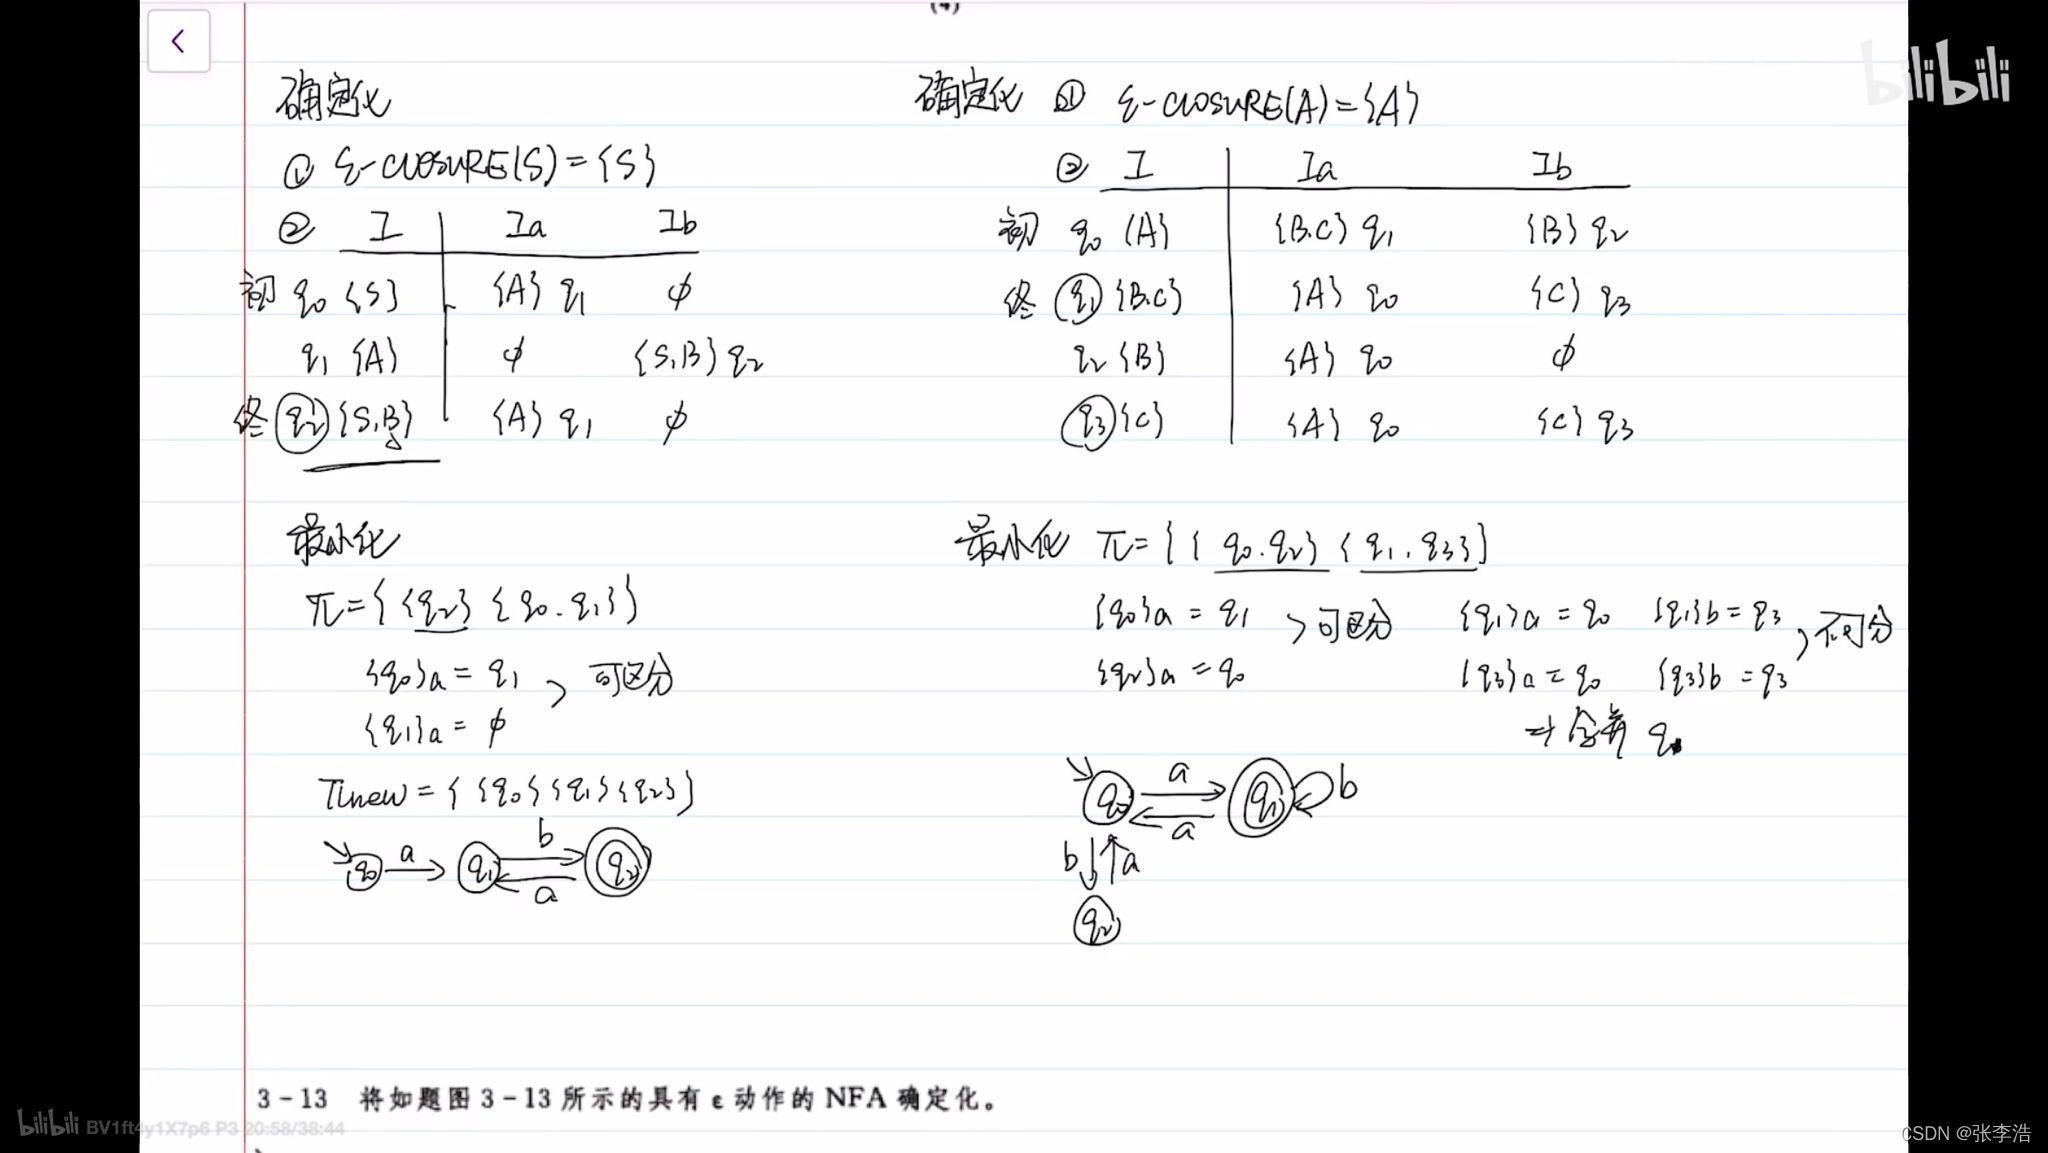 (4)
bilibili
确定化
① ε-CLOSURE(S)={S}
② I Ia Ib
初 q0 {S} {A} q1 φ
q1 {A} φ {S,B} q2
终 q2 {S,B} {A} q1 φ
最小化
π={{q2} {q0.q1}}
{q0}a = q1 > 可区分
{q1}a = φ
πnew = {{q0}{q1}{q2}}
q0 a q1 b a q2
确定化 ① ε-CLOSURE(A)={A}
② I Ia Ib
初 q0 {A} {B.C} q1 {B} q2
终 q1 {B.C} {A} q0 {C} q3
q2 {B} {A} q0 φ
q3 {C} {A} q0 {C} q3
最小化 π={{q0.q2} {q1.q3}}
{q0}a = q1 > 可区分 {q1}a = q0 {q1}b = q3 > 不可分
{q2}a = q0 {q3}a = q0 {q3}b = q3
⇒ 合并 q
a q1 b
a
b a
q2
3-13 将如题图 3-13 所示的具有 ε 动作的 NFA 确定化。
bilibili BV1ft4y1X7p6 P3 20:58/38:44
CSDN @张李浩